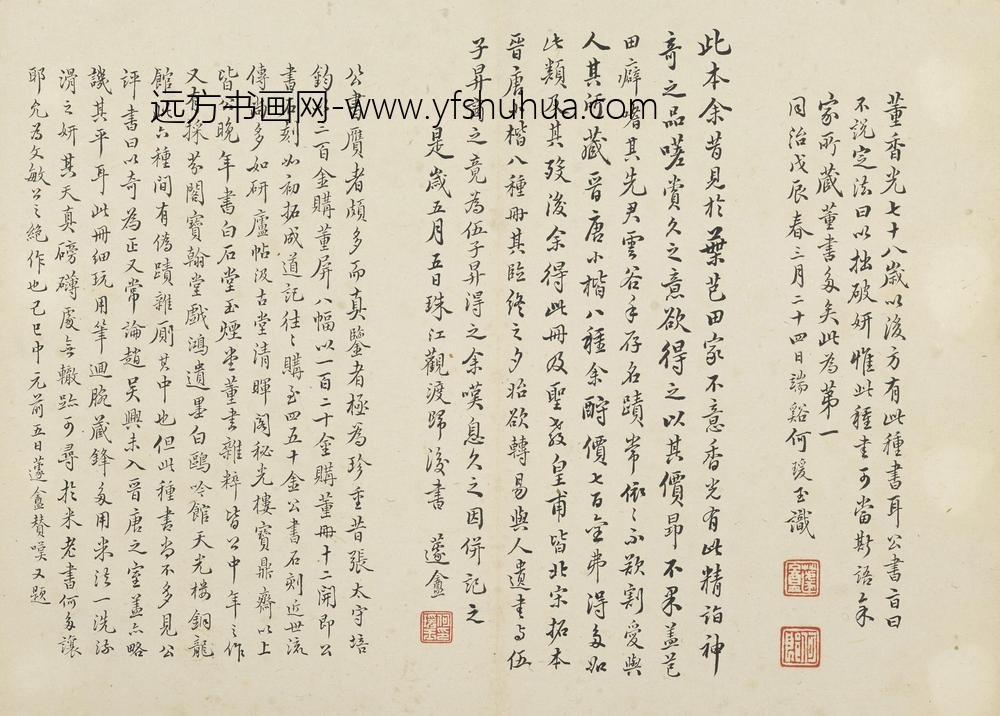 董香光七十八歲以後方有此種書耳公書旨曰
不說定法曰以拙破妍惟此種書可當斯語余
家所藏董書多矣此為第一
同治戊辰春三月二十四日端谿何瑗玉識
此本余昔見於葉芑田家不意香光有此精詣神
奇之品嗟賞久之意欲得之以其價昂不果蓋芑
田癖嗜其先君雲谷手存名蹟常依〻不欲割愛與
人其所藏晉唐小楷八種余酧價七百金弗得多如
此類及其歿後余得此冊及聖教皇甫皆北宋拓本
晉唐小楷八種冊其臨終之夕始欲轉易與人遺書与伍
子昇買之竟為伍子昇得之余嘆息久之因併記之
是歲五月五日珠江觀渡歸後書 蘧盦
公書贋者頗多而真鑒者極為珍重昔張太守培
鈞二三百金購董屏八幅以一百二十金購董冊十二開即公
書石刻如初拓成道記往〻購至四五十金公書石刻近世流
傳尚多如研廬帖汲古堂清暉閣秘光樓寶鼎齋以上
皆公晚年書白石堂玉煙堂董書雜粹皆公中年之作
又有採芬閣寶翰堂戲鴻遺墨白鷗吟館天光樓銅龍
館共六種間有偽蹟雜廁其中也但此種書尚不多見公
評書曰以奇為正又常論趙吳興未入晉唐之室蓋亦略
譏其平耳此冊細玩用筆迴腕藏鋒多用米法一洗流
滑之妍其天真磅礴處無轍跡可尋於米老書何多讓
耶允為文敏公之絕作也己巳中元前五日蘧盦贊嘆又題
远方书画网-www.yfshuhua.com